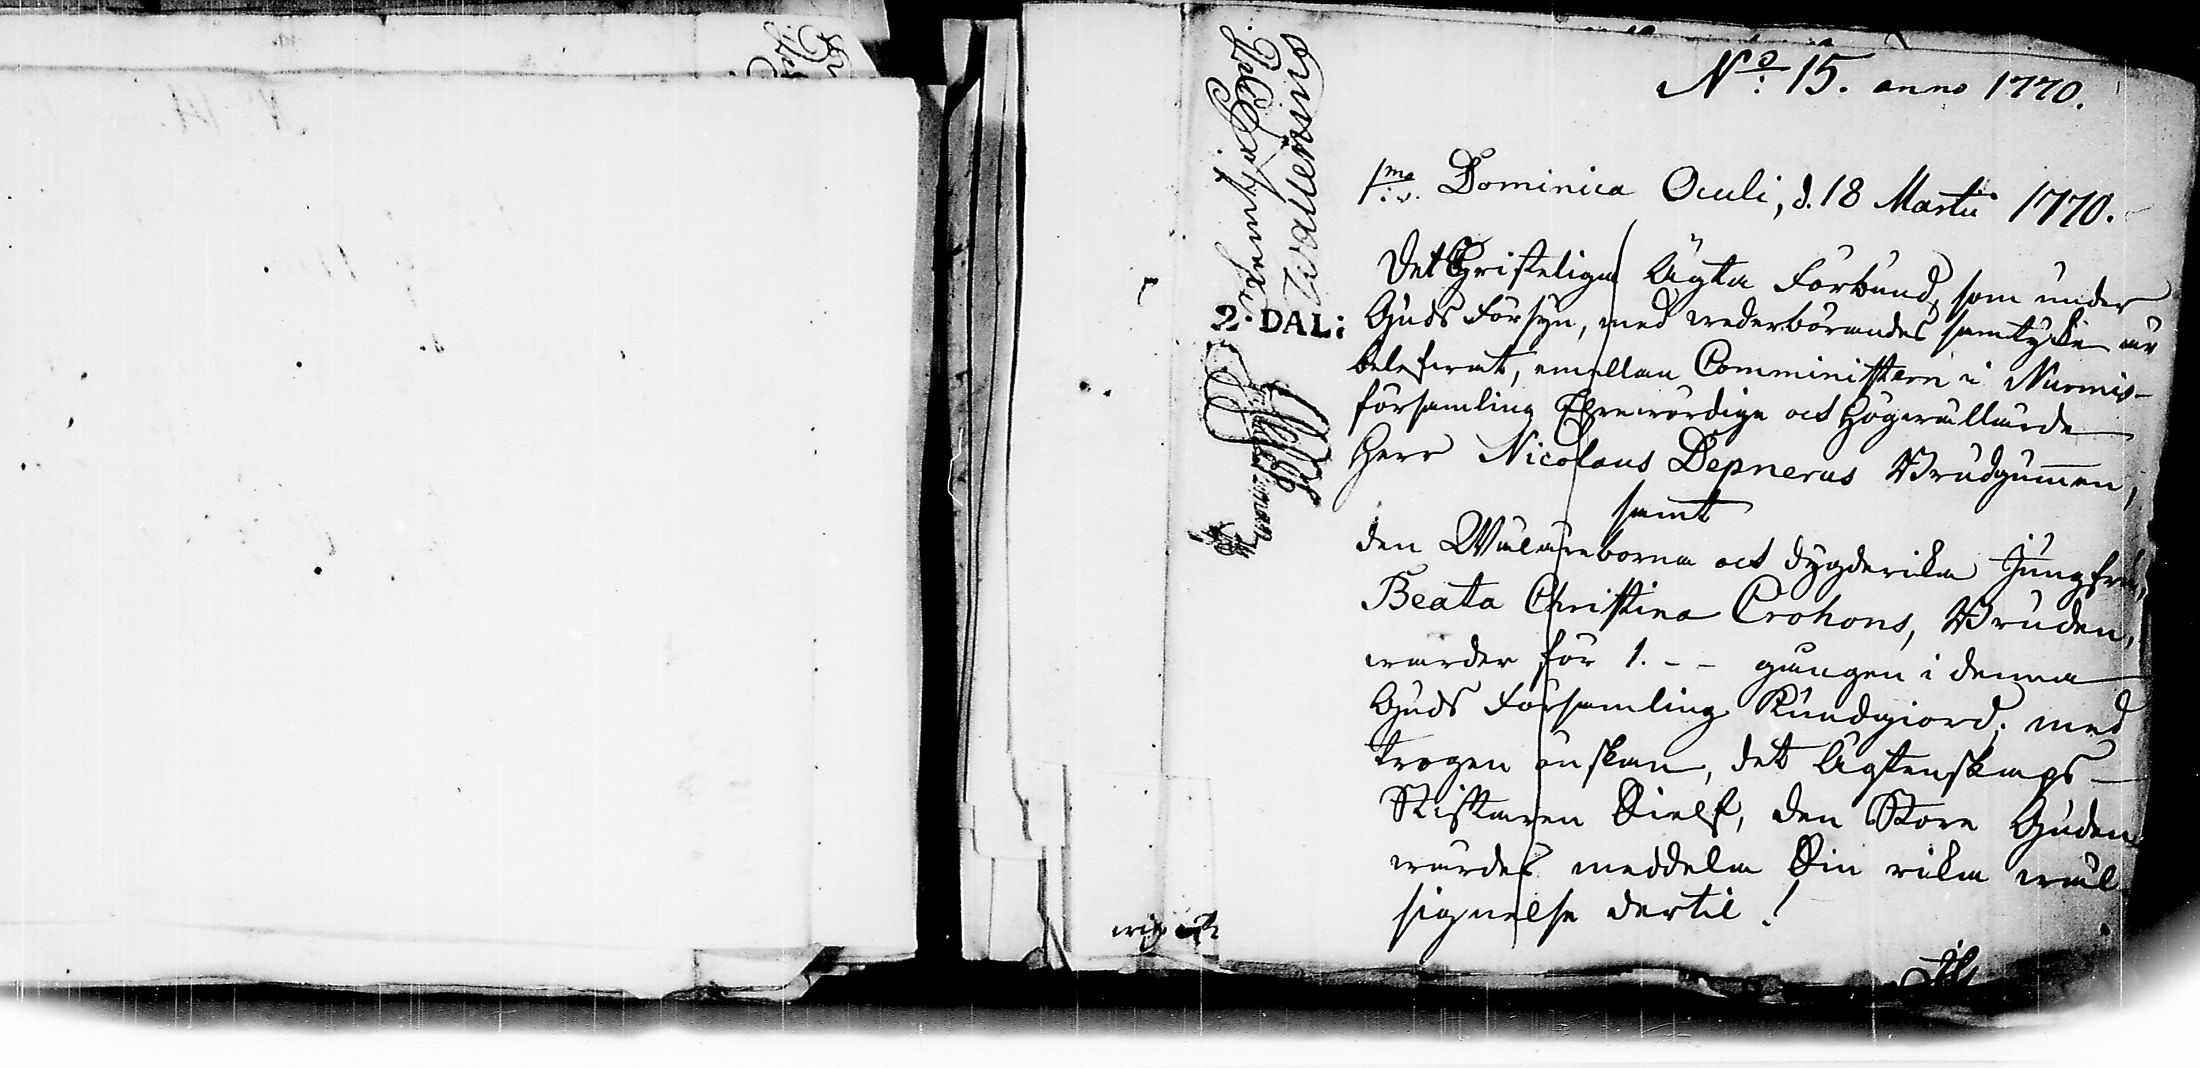 No: 15. anno 1770.
1mo Dominica Oculi, d. 18 Martii 1770.
Det Christeliga Ägta Förbund, som under
Guds Försyn, med wederbörandes samtycke är
beleswat, emellan Comministern i Nurmis-
församling Ehrewördige och Högwällärde
Herr Nicolaus Depnerus Brudgummen,
samt
den Wälährborna och dygderika Jungfru,
Beata Christina Crohons, Bruden,
warder för 1. - - gången i denna
Guds Församling Kundgiord; med
trogen önskan, det Ägtenskaps-
Stiftaren Sielf, den Store Guden
wärdes meddela Sin rika wäl-
signelse dertil!
2. DAL:
Wallenius